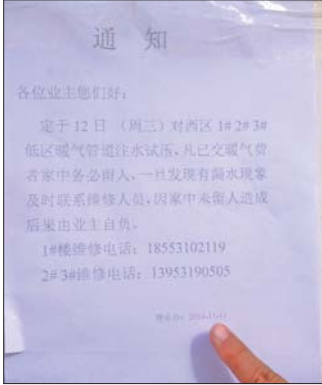 通 知
各位业主您们好：
定于12日（周三）对西区1#2#3#
低区暖气管道注水试压，凡已交暖气费
者家中务必留人，一旦发现有漏水现象
及时联系维修人员，因家中未留人造成
后果由业主自负。
1#楼维修电话：18553102119
2#3#维修电话：13953190505
2014-11-11